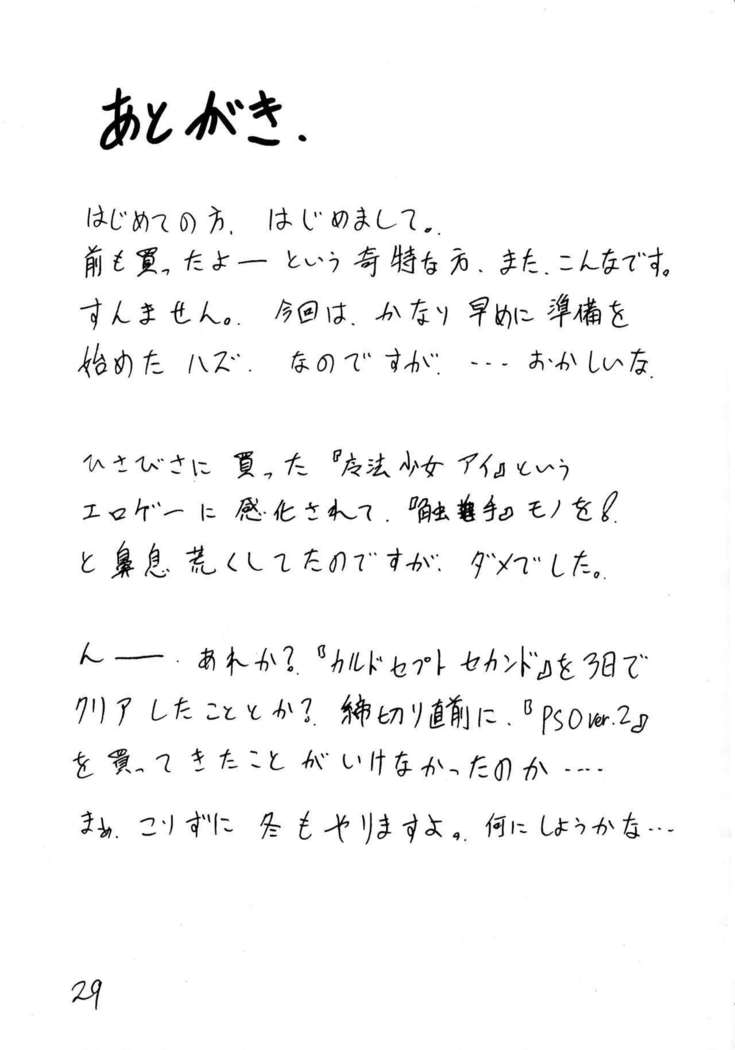 あとがき.
はじめての方、はじめまして。
前も買ったよーという奇特な方、また、こんなです。
すんません。今回は、かなり早めに準備を
始めたハズ、なのですが、…おかしいな、
ひさびさに買った『魔法少女アイ』という
エロゲーに感化されて、『触手』モノを!
と鼻息荒くしてたのですが、ダメでした。
んー、あれか?『カルドセプト セカンド』を3日で
クリアしたこととか?締切り直前に、『PSO ver.2』
を買ってきたことがいけなかったのか…
まぁ、こりずに冬もやりますよ。何にしようかな…
29